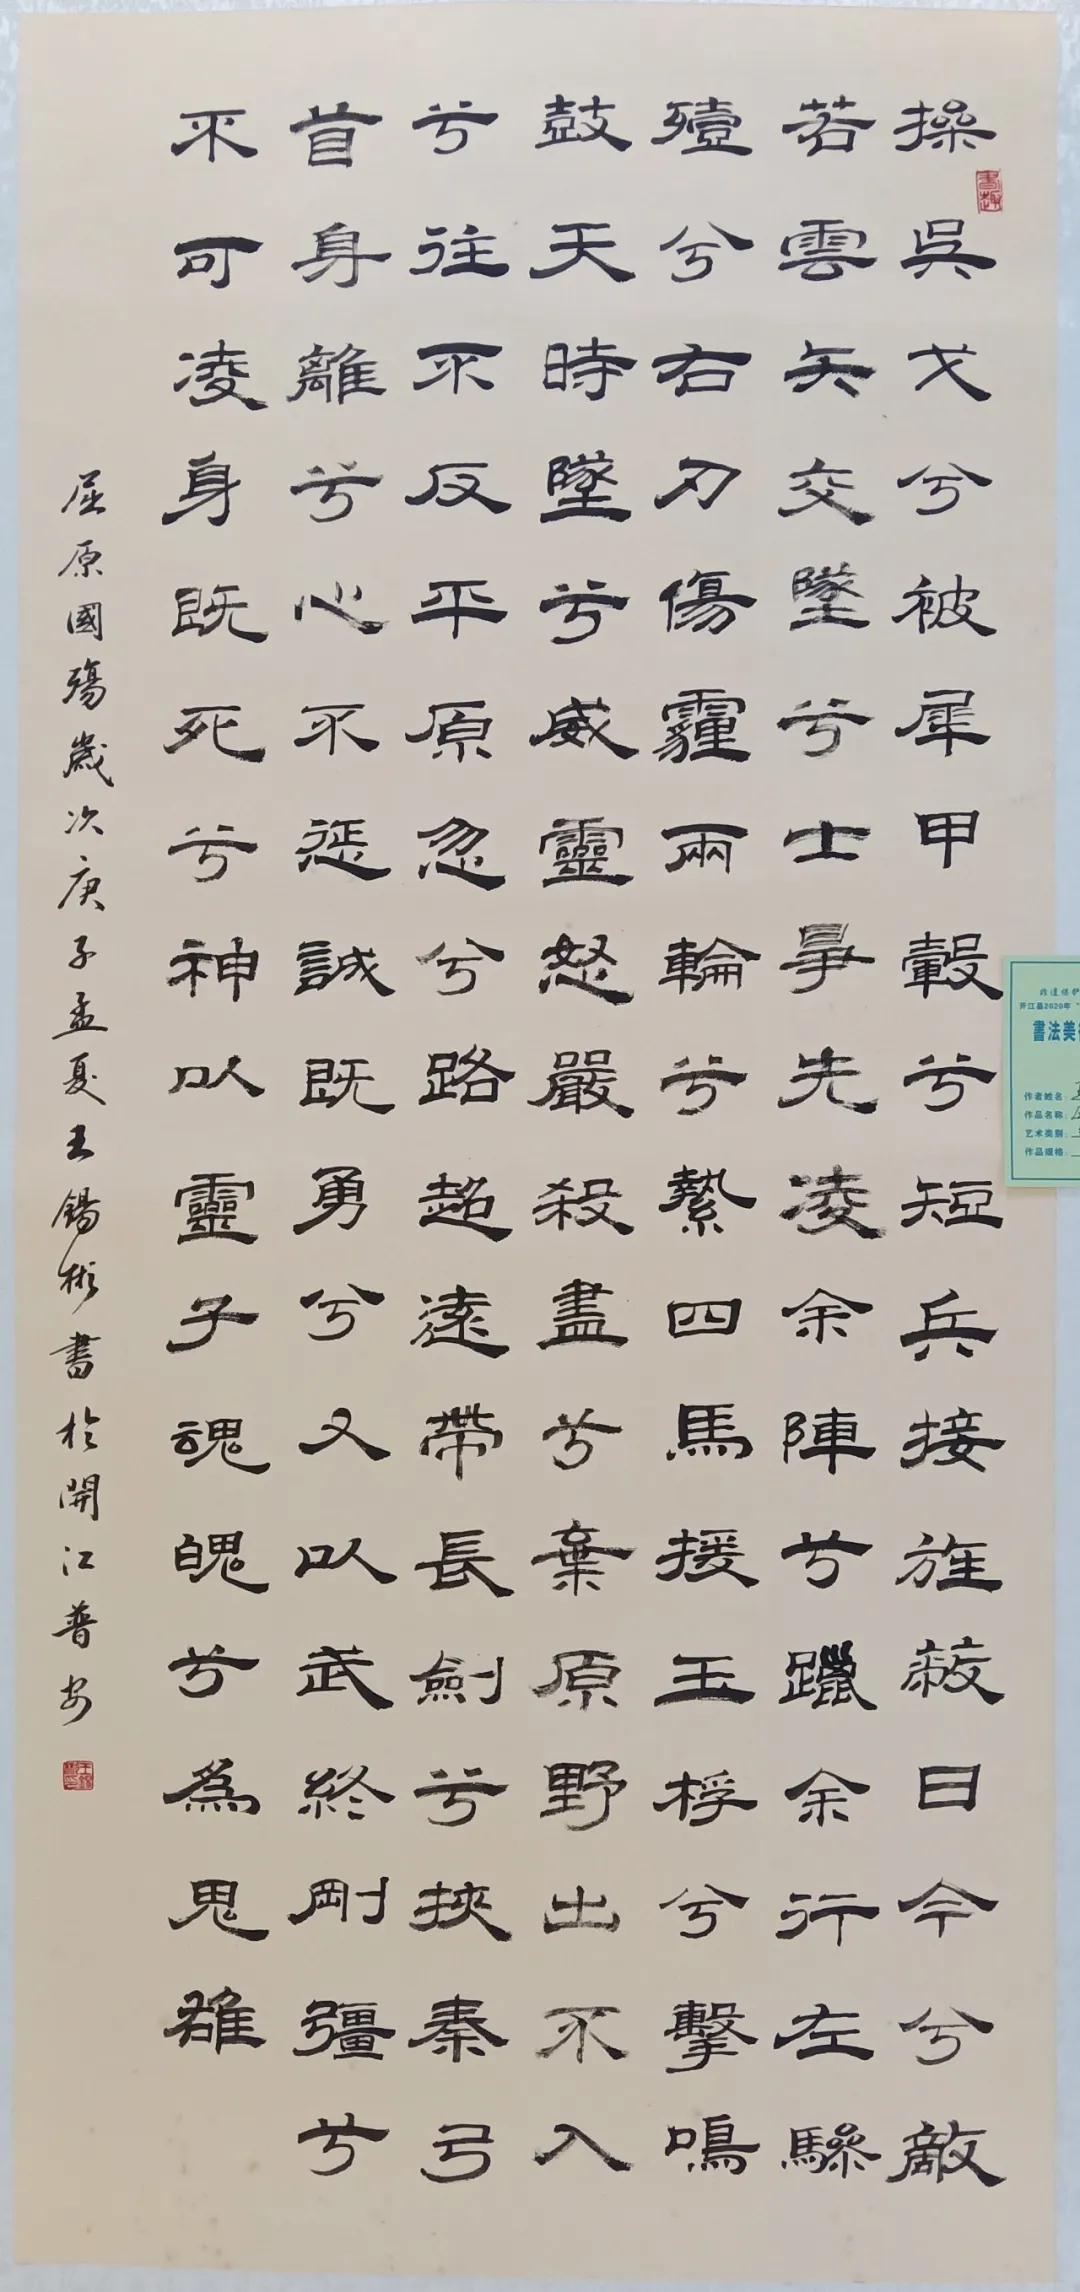 操吳戈兮被犀甲轂兮短兵接旌蔽日今兮敵
若雲矢交墜兮士爭先凌余陣兮躐余行左驂
殪兮右刃傷霾兩輪兮縶四馬援玉桴兮擊鳴
鼓天時墜兮威靈怒嚴殺盡兮棄原野出不入
兮往不反平原忽兮路超遠帶長劍兮挾秦弓
首身離兮心不懲誠既勇兮又以武終剛彊兮
不可凌身既死兮神以靈子魂魄兮為鬼雄
屈原國殤歲次庚子孟夏王錫彬書於開江普安
开江县2020年
書法美
作者姓名：
作品名称：
艺术类别：
作品规格：